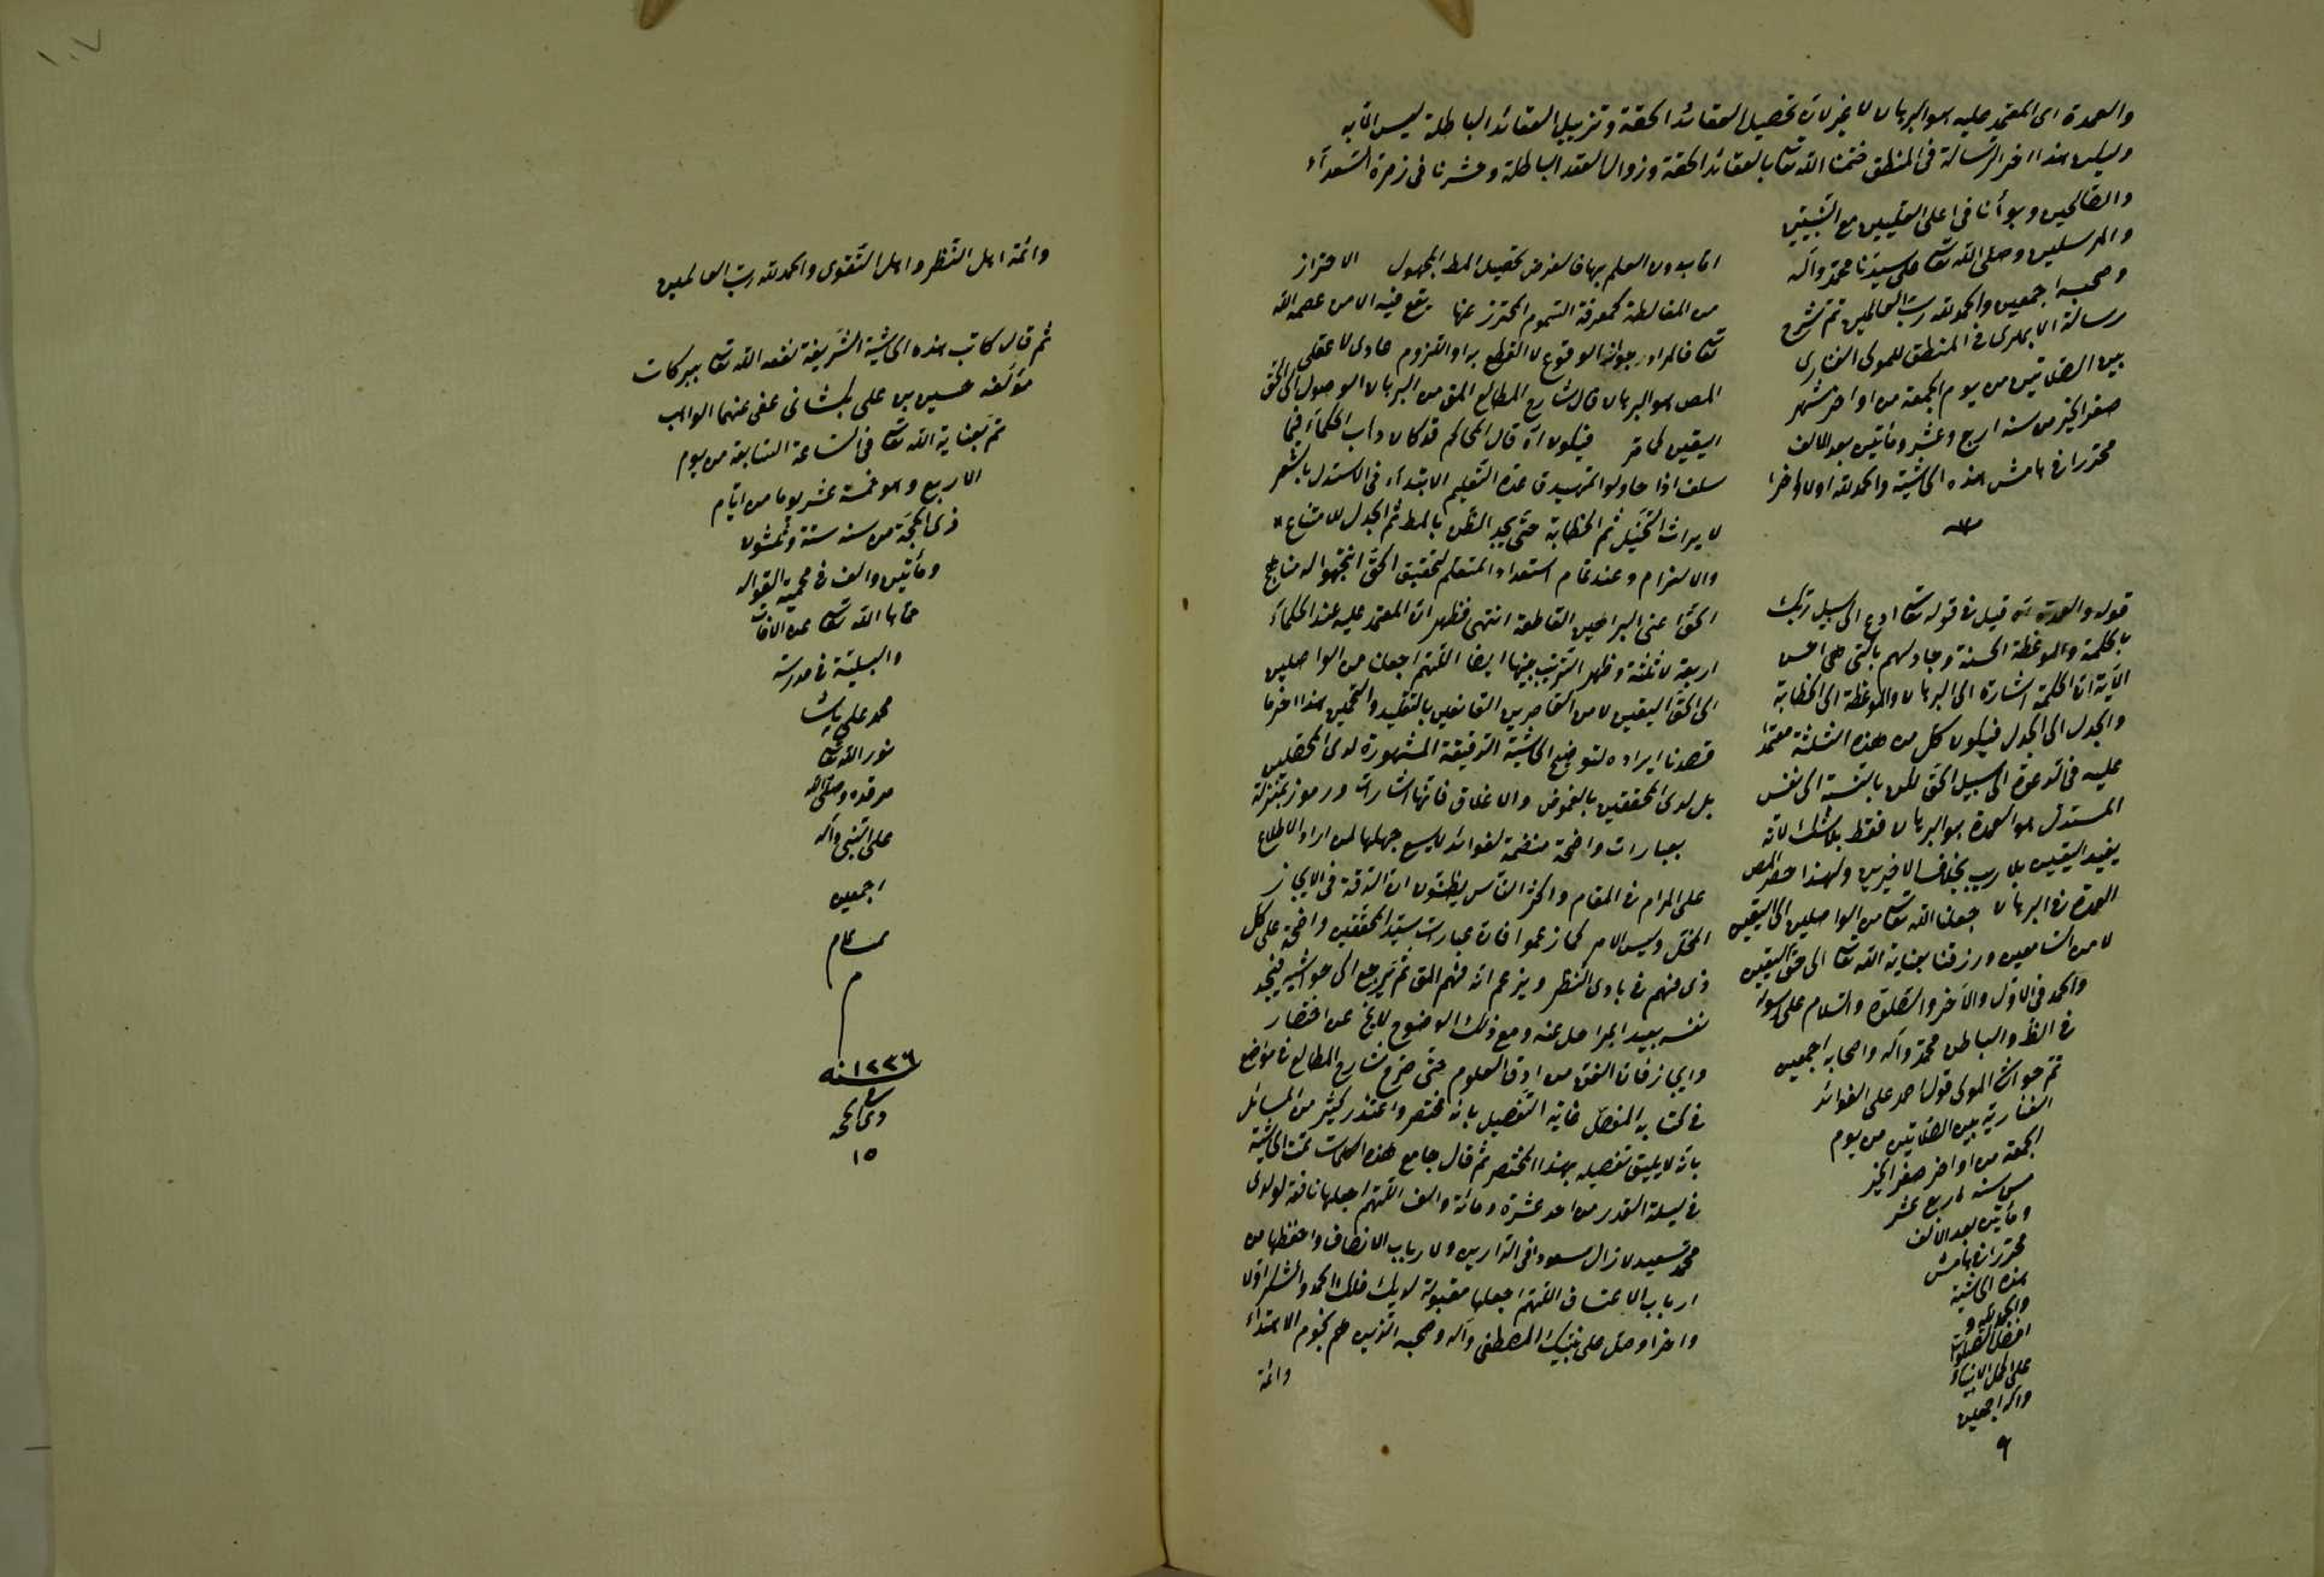 والعمدة اى المعتمد عليه هو البرهان لا غير لان تحصيل العقائد الحقة وتزييل العقائد الباطلة ليس الا به
وليكن هذا اخر الرسالة فى المنطق ختمنا الله تعا بالعقائد الحقة وزوال العقد الباطلة وحشرنا فى زمرة السعدآء
والصالحين وبوأنا فى اعلى العليين مع النبيين
والمرسلين وصلى الله تعا على سيدنا محمد وآله
وصحبه اجمعين والحمد لله رب العالمين تم شرح
رسالة الابهرى فى المنطق للمولى الفنارى
بين الصلاتين من يوم الجمعة من اواخر شهر
صفر الخير من سنه اربع وعشر ومأتين بعد الالف
محررا فى هامش هذه الحاشية والحمد لله اولا واخرا
قوله والعمدة اه قيل فى قوله تعا ادع الى سبيل ربك
بالحكمة والموعظة الحسنة وجادلهم بالتى هى احسن
الآية ان الحكمة اشارة الى البرهان والموعظة الى الخطابة
والجدل الى الجدل فيكون كل من هذه الثلثة معتمدا
عليه فى الدعوة الى سبيل الحق لكن بالنسبة الى نفس
المستدل هو العمدة هو البرهان فقط بلا شك لانه
يفيد اليقين بلا ريب بخلاف الاخيرين ولهذا حصر المص
العمدة فى البرهان جعلنا الله تعا من الواصلين الى اليقين
لا من السامعين ورزقنا بعناية الله تعا الى حق اليقين
والحمد فى الاول والآخر والصلوة والسلام على رسوله
فى الظ والباطن محمد وآله واصحابه اجمعين
تم حواشى المولى قول احمد على الفوائد
الفنارية بين الصلاتين من يوم
الجمعه من اواخر صفر الخير
من سنه اربع عشر
ومأتين بعد الالف
محررا فى هامش
هذه الحاشية
والحمد لله و
افضل الصلوات
على اكمل الانبياء
وآله اجمعين
اما بدون العلم بها فالغرض تحصيل المط المجهول الاحتراز
من المغالطة كمعرفة السموم المحترز عنها يقع فيه الا من عصمه الله
تعا فالمراد جواز الوقوع لا القطع به او اللزوم عادى لا عقلى
المص هو البرهان قال شارح المطالع المق من البرهان الوصول الى الحق
اليقين لما مر فيكون اه قال المحاكم قد كان دأب الحكمآء فيما
سلف اذا حاولوا تمهيد قاعدة التعليم الابتدآء فى الاستدلال بالشعر
لايراث التخيل ثم الخطابة حتى يجد الظن بالمط ثم الجدل للاقناع
والالزام وعند تمام استعداد المتعلم لتحقيق الحق انتجهوا له مناهج
الحق اعنى البراهين القاطعة انتهى فظهر ان المعتمد عليه عند الحكمآء
اربعة لا ثلثة وظهر الترتيب بينها ايضا اللهم اجعلنا من الواصلين
الى الحق اليقين لا من القاصرين القانعين بالتقليد والتخمين هذا اخر ما
قصدنا ايراده لتوضيح الحاشية الدقيقة المشهورة لدى المحصلين
بل لدى المحققين بالغموض والاغلاق فانها اشارات ورموز بمنزلة
بعبارات واضحة متضمنة لفوائد لا يسع جهلها لمن اراد الاطلاع
على المرام فى المقام واكثر الناس يظنون ان الدقة فى الايجاز
المخل وليس الامر كما زعموا فان عبارات سيد المحققين واضحة على كل
ذى فهم فى بادى النظر ويزعم انه فهم المق ثم يرجع الى حواشيه فيجد
نفسه بعيد المراحل عنه ومع ذلك الوضوح لا يخ عن اختصار
وايجاز فان الفن من ادق العلوم حتى صرح شارح المطالع فى مواضع
فى كتابه المفصل غاية التفصيل بانه مختصر واعتذر كثير من المسائل
بانه لا يليق تفصيله بهذا المختصر ثم قال جامع هذه الكلمات تمت الحاشية
فى ليلة القدر من احد عشرة ومائة والف اللهم اجعلها نافعة لولدى
محمد سعيد لا زال مسعودا فى الدارين ولارباب الانصاف واحفظها من
ارباب الاعتساف اللهم اجعلها مقبولة لديك فلك الحمد والشكر اولا
واخرا وصل على نبيك المصطفى وآله وصحبه الذين هم نجوم الاهتدآء
وائمة
١٠٧
وائمة اهل النظر واهل التقوى والحمد لله رب العالمين
ثم قال كاتب هذه الحاشية الشريفة نفعه الله تعا ببركات
مؤلفه حسين بن على عفى عنهما الواهب
تم بعناية الله تعا فى الساعة السابعة من يوم
الاربع وهو خمسة عشر يوما من ايام
ذى الحجة من سنه ستة وثلثون
ومأتين والف فى محمية القواله
حماها الله تعا عن الافات
والبلية فى مدرسة
محمد على پاشا
نور الله تعا
مرقده وصلى الله
على النبى وآله
اجمعين
تمام
م
سنه ١٢٣٦
ذى الحجه
١٥